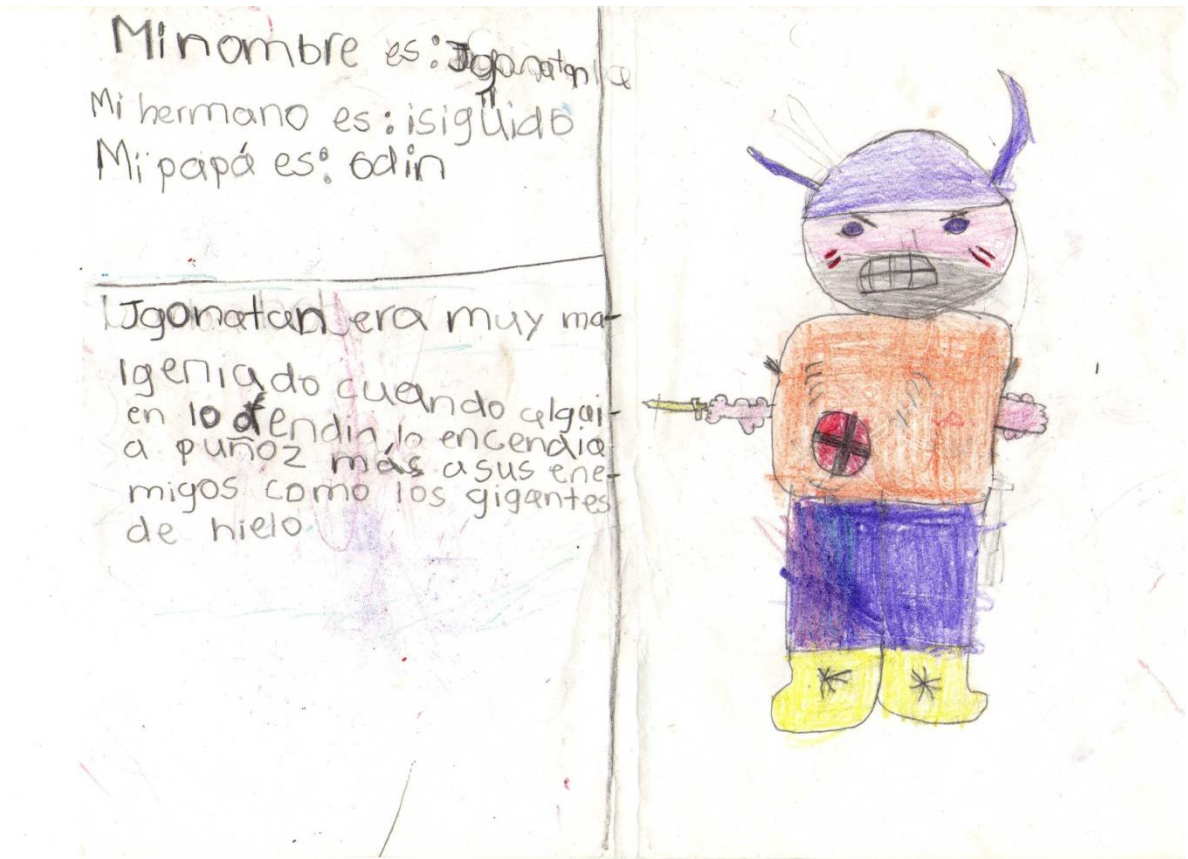 Mi nombre es: Jgonatan
Mi hermano es: isigüido
Mi papá es: odin
Jgonatan era muy ma-
lgeniado cuando algai-
en lo ofendia lo encendia
a puñoz más asus ene-
migos como los gigantes
de hielo